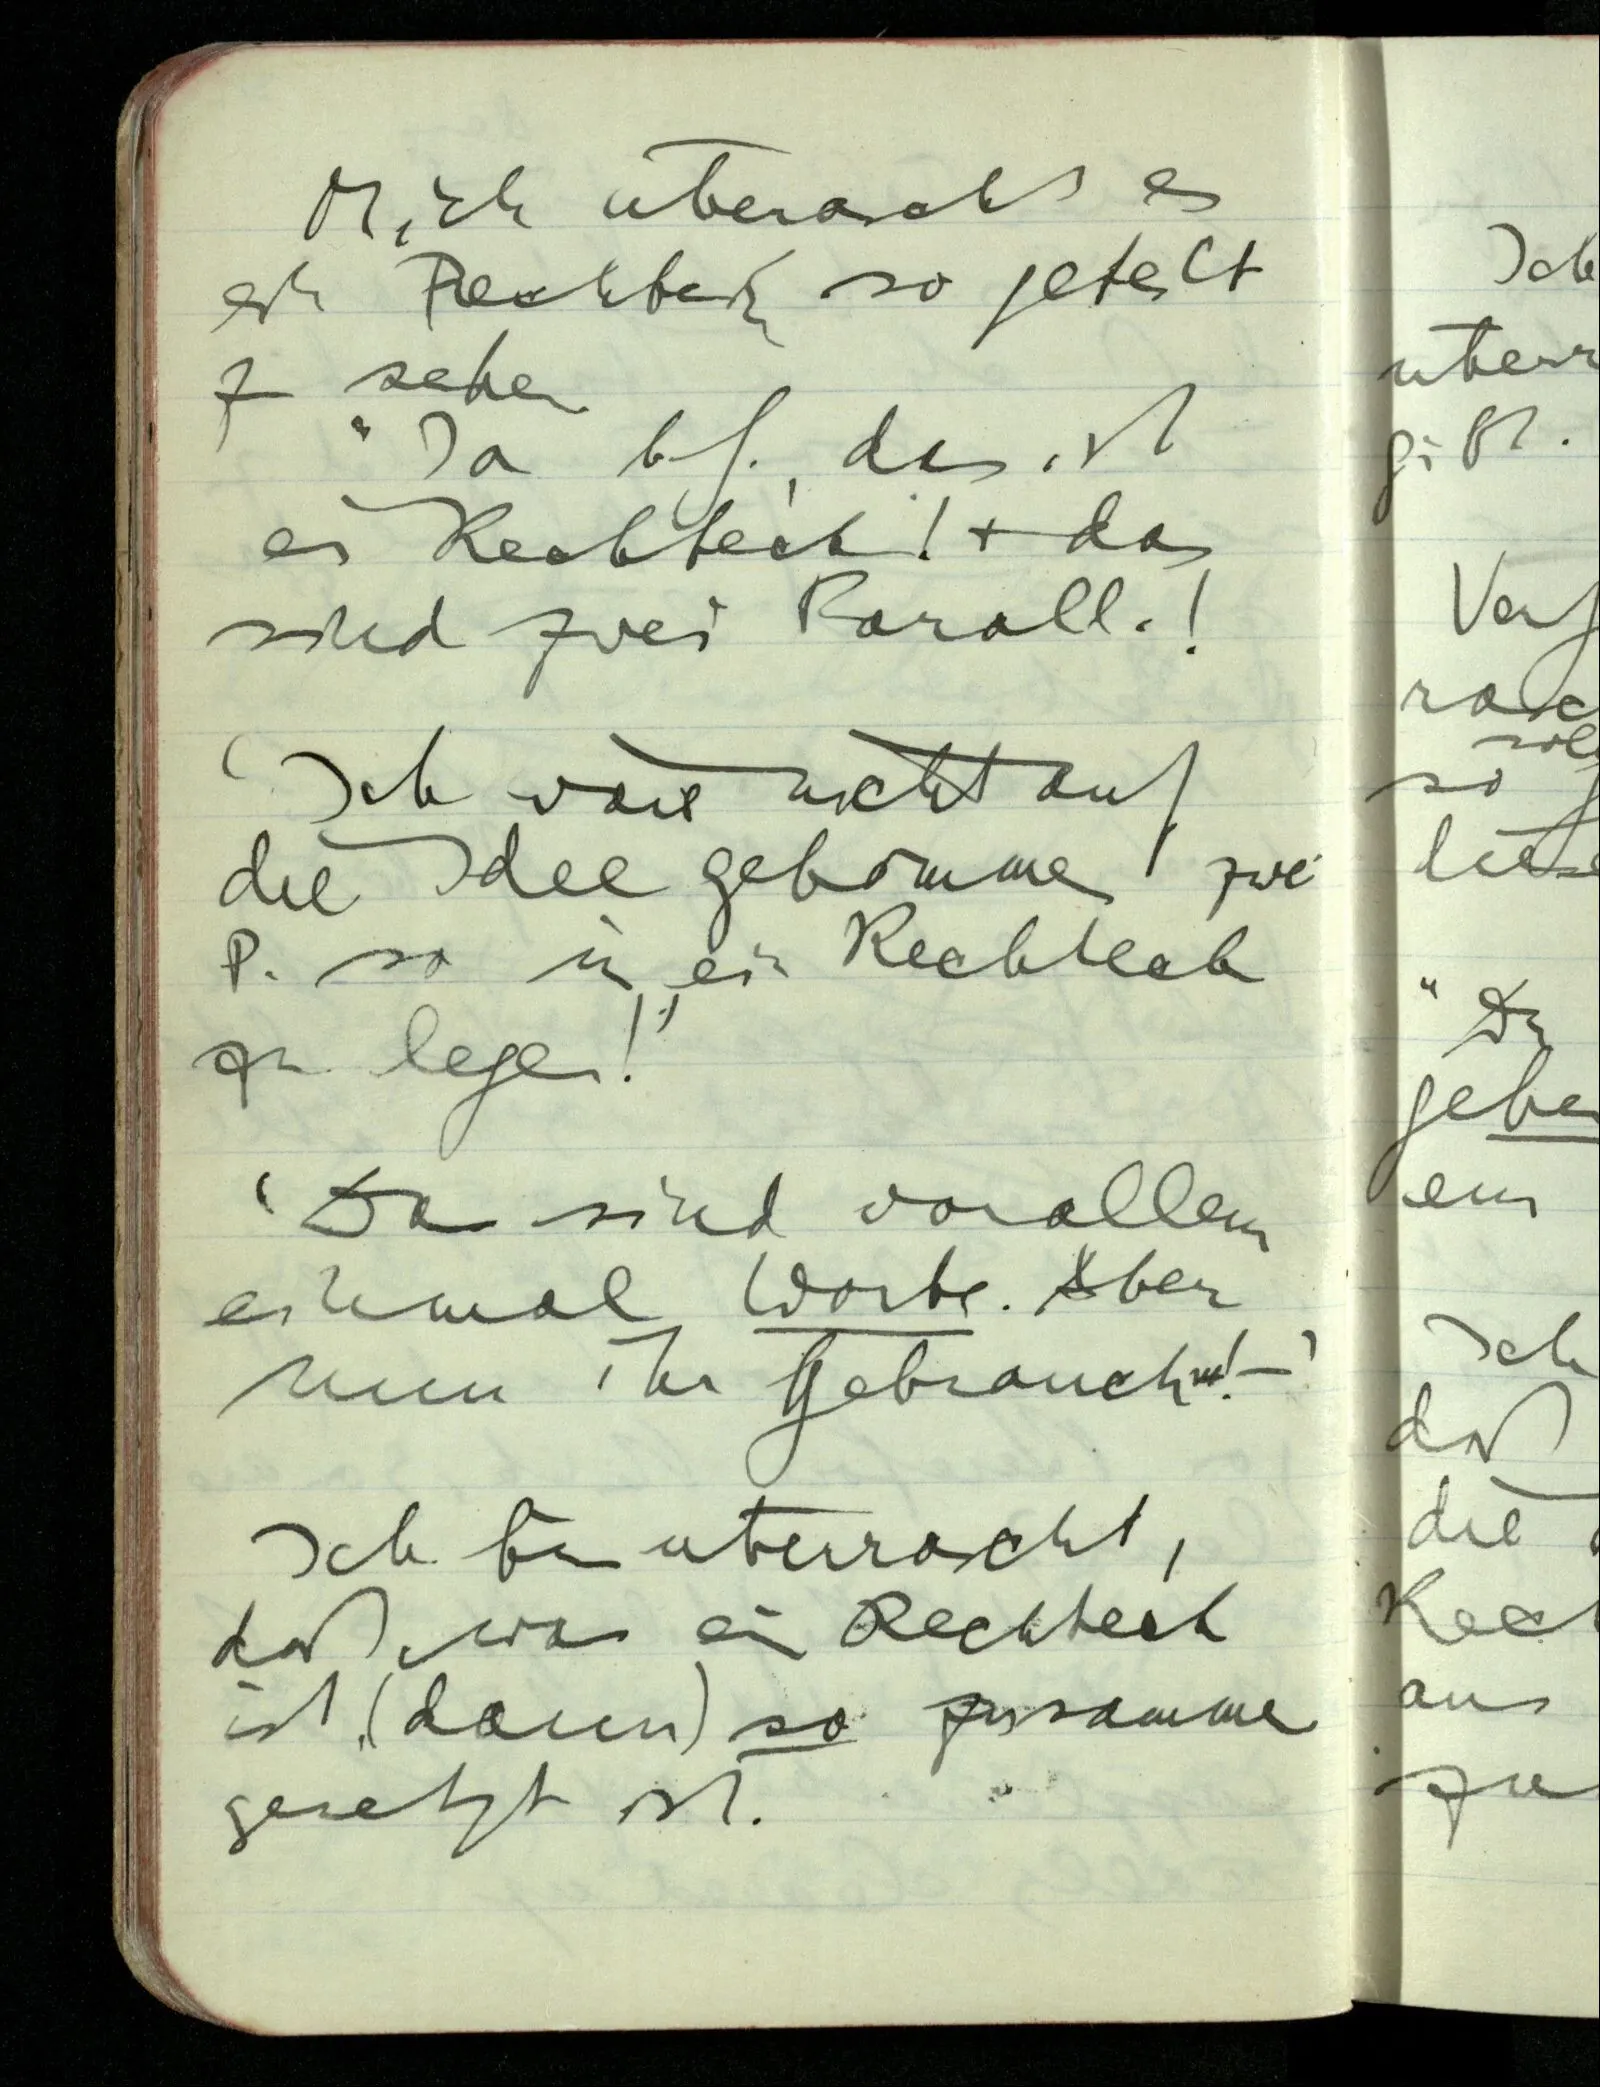 Mich überrascht es
ein Rechteck so geteilt
zu sehen
"Ja das ist
ein Rechteck! + das
sind zwei Parall.!
"Ich wäre nicht auf
die Idee gekommen zwei
P. so in ein Rechteck
zu legen!"
"Da sind vorallem
einmal Worte. Aber
nun ihr Gebrauch! –"
Ich bin überrascht,
daß, was ein Rechteck
ist, (dann) so zusammen
gesetzt ist.
Ich
überr
gibt.
Verf
rasc
so
diese
"Du
geben
ein
Ich
daß
die
Rech
aus
zu